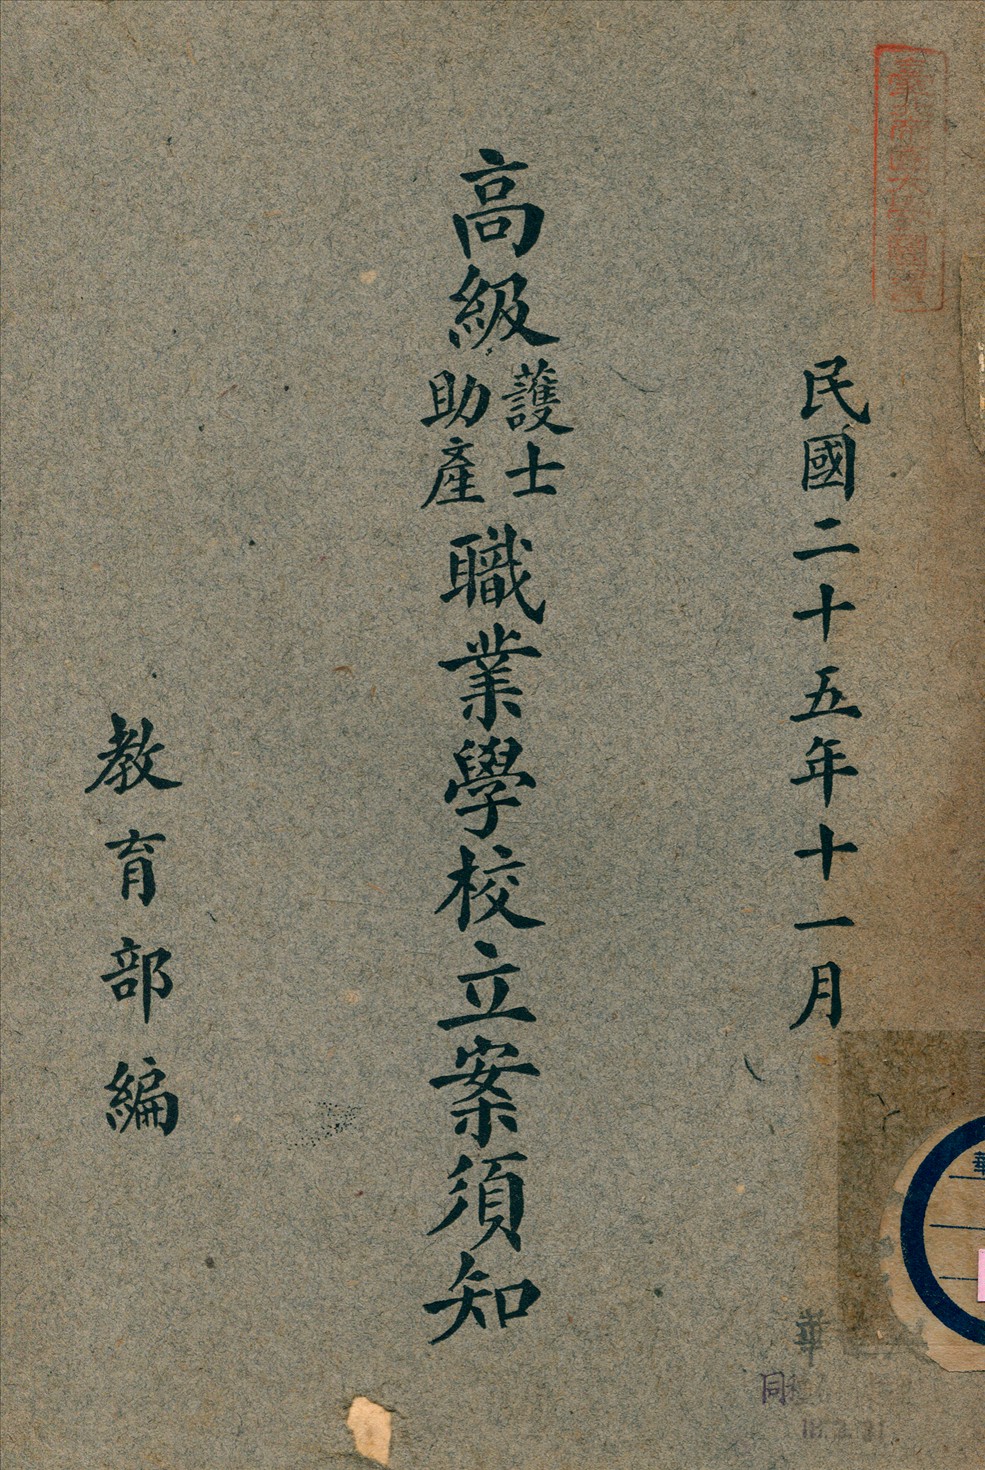 民國二十五年十一月
高級護士助產職業學校立案須知
教育部編
華
同
華